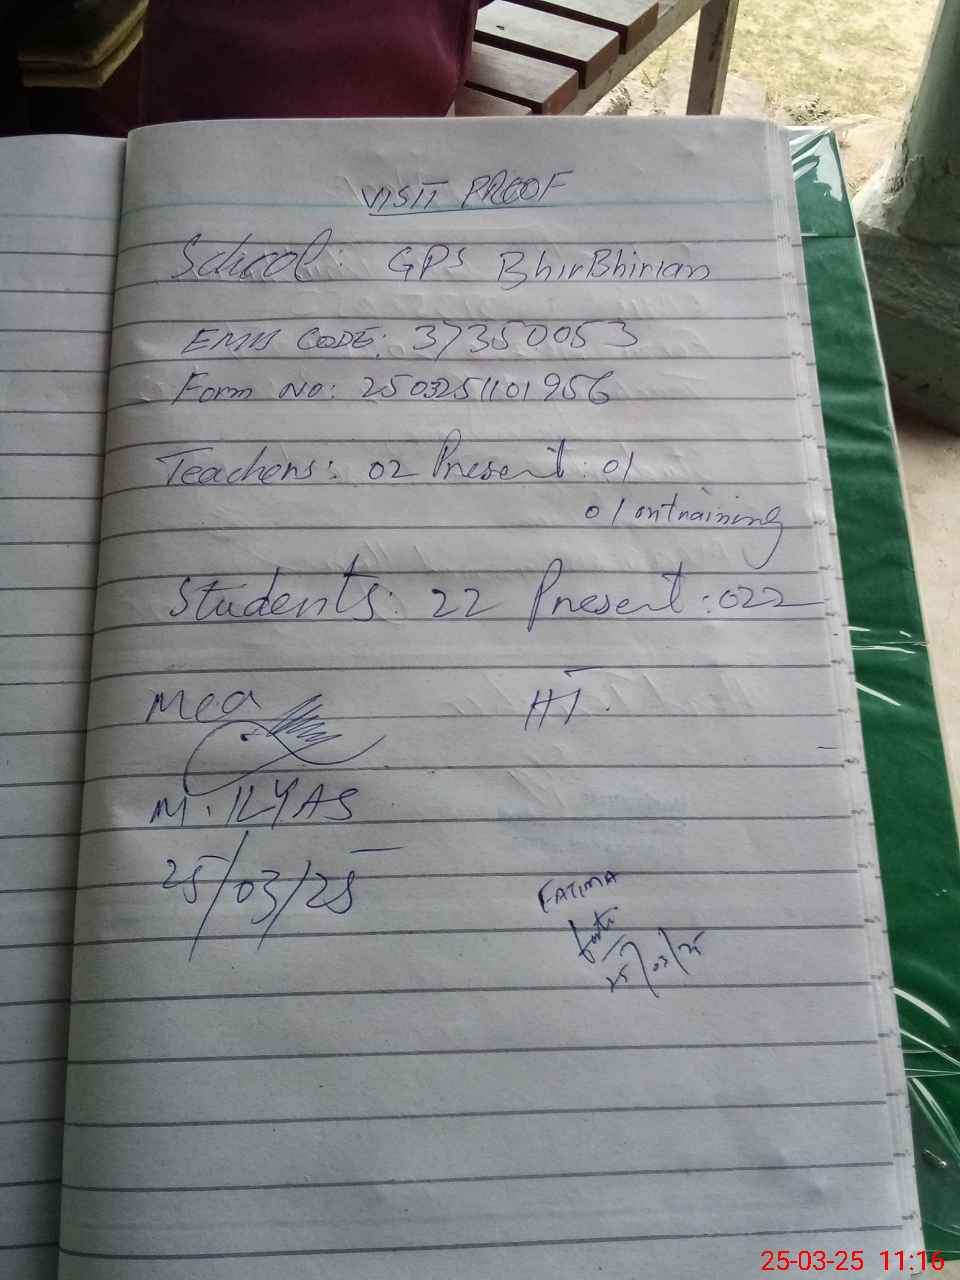 VISIT PROOF
School: GPS BhirBhirian
EMIS CODE: 37350053
Form No: 2503251101956
Teachers: 02 Present: 01
01 on training
Students: 22 Present: 022
Mea
HT
M. ILYAS
25/03/25
FATIMA
25/03/25
25-03-25 11:16